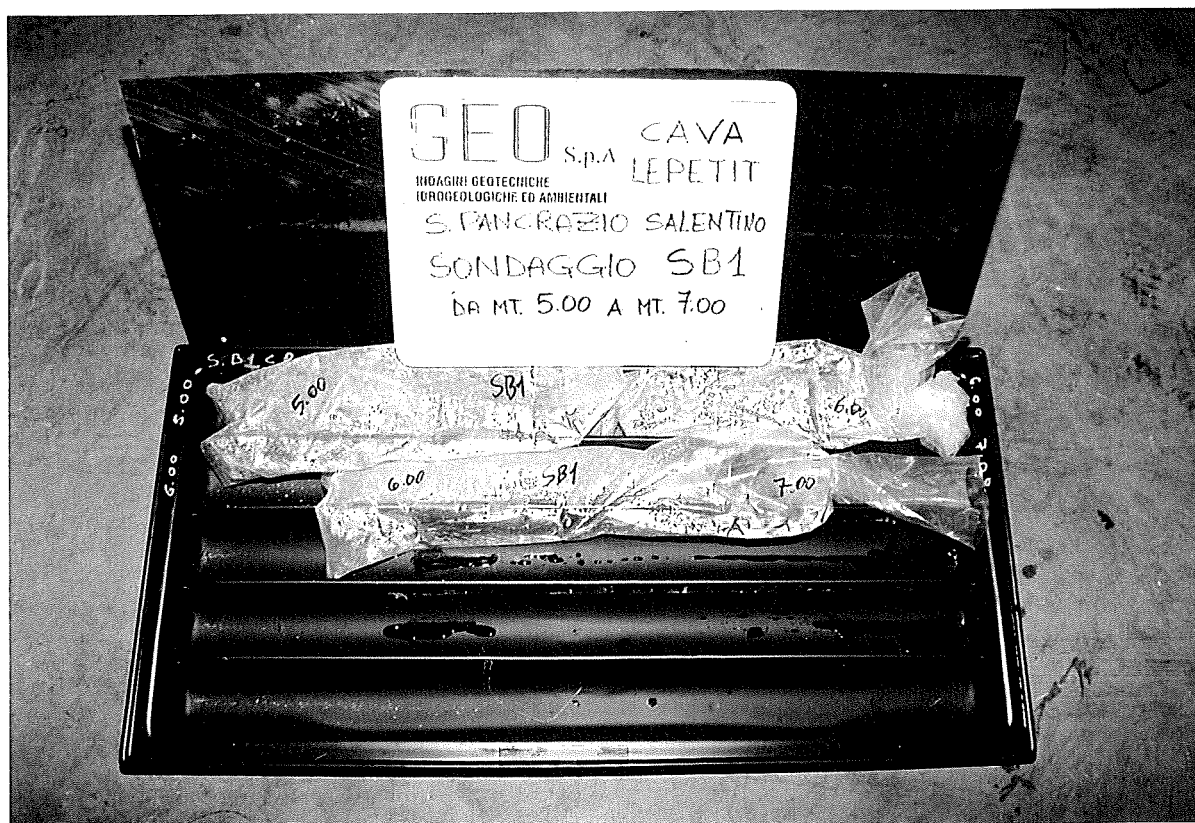 GEO S.p.A
INDAGINI GEOTECNICHE
IDROGEOLOGICHE ED AMBIENTALI
CAVA
LEPETIT
S. PANCRAZIO SALENTINO
SONDAGGIO SB1
DA MT. 5.00 A MT. 7.00
S.B1 C
5.00
6.00
5.00 SB1 6.00
6.00
6.00 SB1 7.00